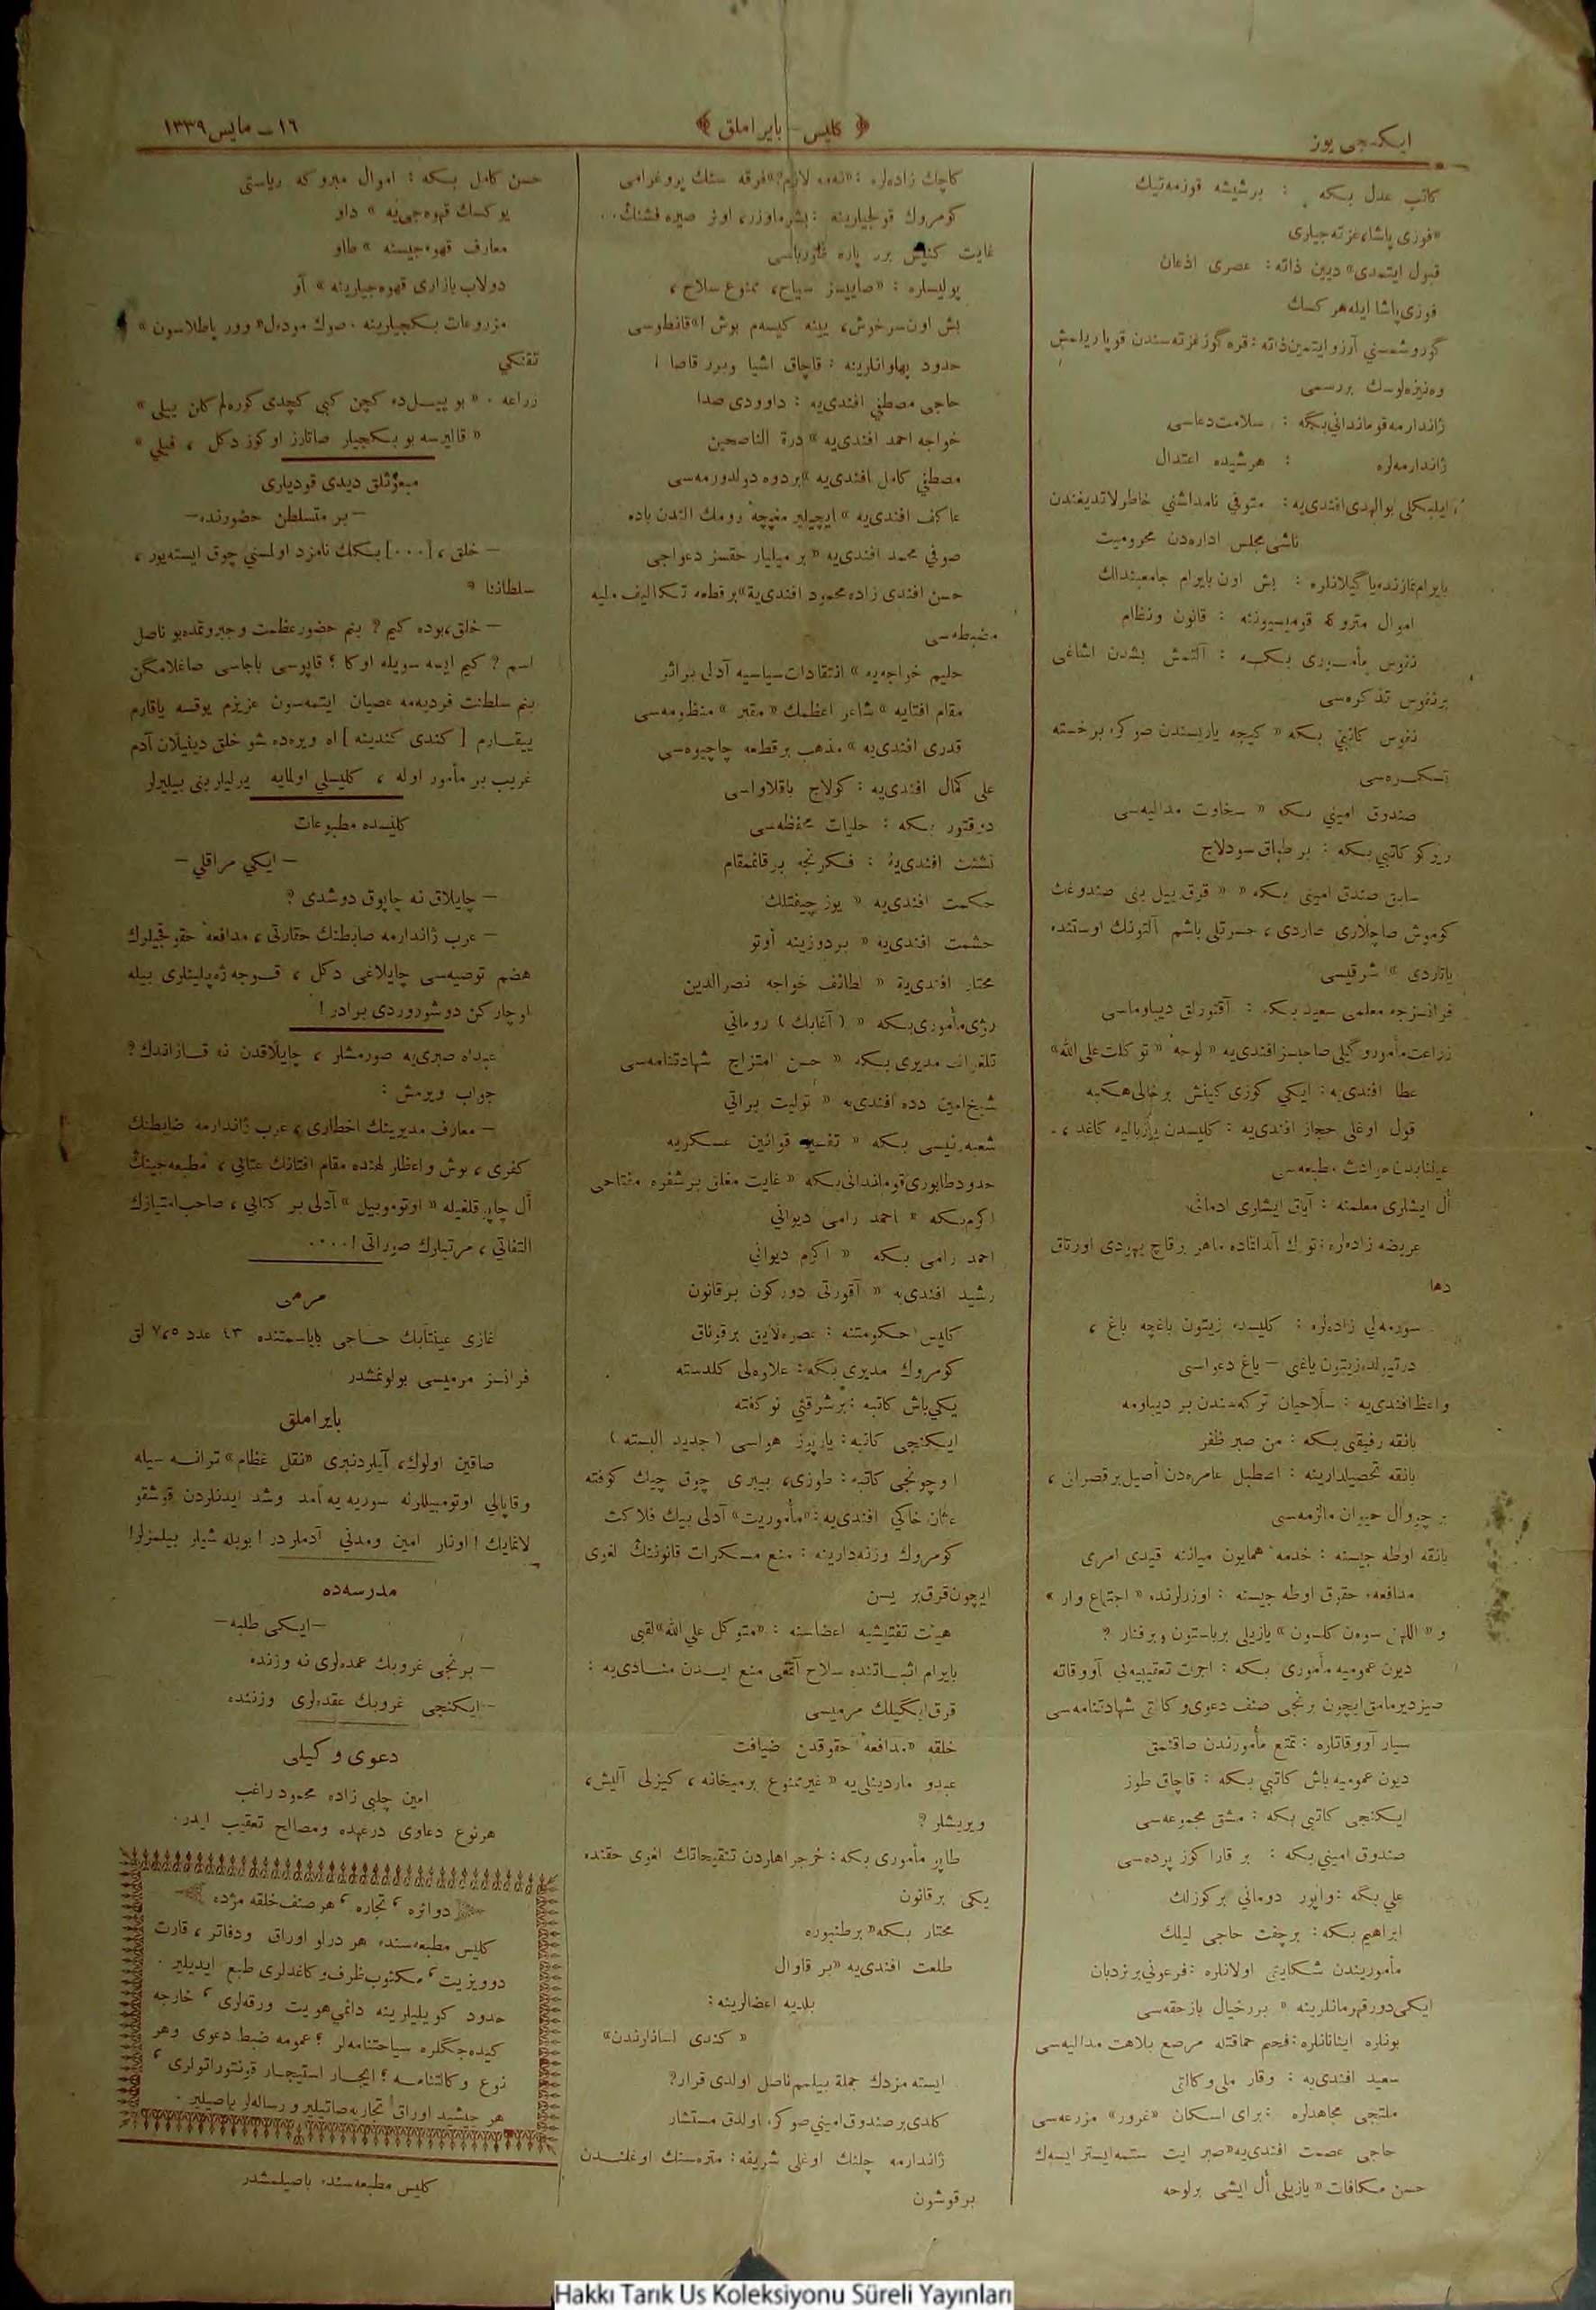 ایكنجی یوز
﴿ كلیس - بایراملق ﴾
١٦ - مایس ١٣٣٩
كاتب عدل بكه : برشیشه قوزمه تیك
«فوزی پاشا، غزته جیلری
قبول ایتمدی» دیین ذاته : عصری اذعان
فوزی پاشا ایله هر كسك
گوروشمسنی آرزو ایتمین ذاته : قره گوز غزته سندن قوپاریلمش
بر رسمی
ژاندارمه قوماندانی بكه : سلامت دعاسی
ژاندارمه لره : هرشیده اعتدال
افندی یه : متوفی نامداشنی خاطرلاتدیغندن
ناشی مجلس اداره دن محرومیت
بش اون بایرام
اموال متروكه قومیسیوننه : قانون ونظام
نفوس مأموری بكه : آلتمش بشدن اشاغی
برنفوس تذكره سی
نفوس كاتبی بكه « كیجه یاریسندن صوكره برخسته
تسكره سی
صندوق امینی بكه « سخاوت مدالیه سی
ویركو كاتبی بكه : بر طباق سودلاج
سابق صندق امینی بكه « « قرق ییل بنی صندوغك
كوموش صاچلاری صاردی ، حسرتلی باشم آلتونك اوستنده
یاتاردی » شرقیسی
فرانسزجه معلمی سعید بكه : آقتورلق دیپلوماسی
زراعت مأمور وكیلی صاحبسز افندی یه « لوحه ٔ « توكلت علی الله»
عطا افندی یه : ایكی كوزی كینش برخالی هكبه
قول اوغلی حجاز افندی یه : كلیسدن كاغد ، -
مطبعه سی
أل ایشلری معلمنه : آیاق ایشلری ادمانی
عریضه زاده لره : برقاچ یهودی اورتاق
دها
سورمه لی زاده لره : كلیسده زیتون باغچه باغ ،
زیتون یاغی - یاغ دعواسی
واعظ افندی یه : سلاحیان تركه سندن بر دیپلومه
بانقه رفیقی بكه : من صبر ظفر
بانقه تحصیلدارینه : اصطبل عامره دن أصیل برقصراق ،
بر چووال حیوان مالزمه سی
بانقه اوطه جیسنه : خدمه ٔ همایون میاننه قیدی امری
مدافعه ٔ حقوق اوطه جیسنه : اوزرلرنده « اجتماع وار »
و « اللهی سون كلسون » یازیلی برباستون وبرفنار ؟
دیون عمومیه مأموری بكه : اجرات تعقیبیه یی آووقاته
صیزدیرمامق ایچون برنجی صنف دعوی وكالتی شهادتنامه سی
سیار آووقاتلره : تمتع مأمورندن صاقنمق
دیون عمومیه باش كاتبی بكه : قاچاق طوز
ایكنجی كاتبی بكه : مشق مجموعه سی
صندوق امینی بكه : بر قارا كوز پرده سی
علی بكه : واپور دومانی بركوزلك
ابراهیم بكه : برچفت حاجی لیلك
مأموریندن شكایتی اولانلره : فرعونی برنردبان
ایكی دور قهرمانلرینه « بررخیال بازحقه سی
بونلره اینانانلره : فحیم حماقتله مرصع بلاهت مدالیه سی
سعید افندی یه : وقار ملی وكالتی
ملتجی مجاهدلره : برای اسكان «غرور» مزرعه سی
حاجی عصمت افندی یه « صبر ایت ستمه ایستر ایسه ك
حسن مكافات » یازیلی أل ایشی برلوحه
كاچك زاده لره : «نه مه لازم؟» فرقه سنك پروغرامی
كومروك قولجیلرینه : بشر ماوزر، اوتز صیره فشنك . .
غایت كنیش برر پاره طورباسی
پولیسلره : «صایبسز سیاح ، ممنوع سلاح ،
بش اون سرخوش ، یینه كیسه م بوش !» قانطوسی
حدود پهلوانلرینه : قاچاق اشیا وبرر قاصا !
حاجی مصطفی افندی یه : داوودی صدا
خواجه احمد افندی یه » درة الناصحین
مصطفی كامل افندی یه » بر دوه دولدورمه سی
عاكف افندی یه » ایچیلیر مغبچه ٔ رومك الندن باده
صوفی محمد افندی یه « بر میلیار حقسز دعواجی
حسن افندی زاده محمود افندی یه » برقطعه تكالیف ملیه
مضبطه سی
حلیم خواجه یه » انتقادات سیاسیه آدلی براثر
مقام افتایه » شاعر اعظمك « مقبر » منظومه سی
قدری افندی یه » مذهب برقطعه چاچیوه سی
علی كمال افندی یه : كولاج باقلاواسی
دوقتور بكه : حلیات محفظه سی
نشئت افندی یه : فكرنجه برقائممقام
حكمت افندی یه « یوز چیفتلك
حشمت افندی یه « بردوزینه أوتو
مختار افندی یه « لطائف خواجه نصرالدین
رژی مأموری بكه « ( آغانك ) رومانی
تلغراف مدیری بكه « حسن امتزاج شهادتنامه سی
شیخ امین دده افندی یه « تولیت براتی
شعبه رئیسی بكه « تفسیر قوانین عسكریه
حدود طابوری قوماندانی بكه « غایت مغلق برشفره مفتاحی
اكرم بكه « احمد رامی دیوانی
احمد رامی بكه « اكرم دیوانی
رشید افندی یه « آقورتی دوركون برقانون
كلیس حكومتنه : عصره لایق برقوناق
كومروك مدیری بكه : علاوه لی كلدسته
یكی باش كاتبه : برشرقی نوكفته
ایكنجی كاتبه : یارپوز هواسی ( جدید البسته )
اوچونجی كاتبه : طوزی ، بیبری چوق چیك كوفته
عثمان خاكی افندی یه : «مأموریت» آدلی بیك فلاكت
كومروك وزنه دارینه : منع مسكرات قانوننك لغوی
ایچون قرق بر یسن
هیئت تفتیشیه اعضاسنه : «متوكل علی الله» لقبی
بایرام اثباتنده سلاح آتمغی منع ایدن منادی یه :
قرق ایكیلك مرمیسی
خلقه « مدافعه ٔ حقوقدن ضیافت
عبدو ماردینلی یه « غیرممنوع برمیخانه ، كیزلی آلیش ،
ویریشلر ؟
طاپو مأموری بكه : خرجراهلردن تنقیحاتك لغوی حقنده
یكی برقانون
مختار بكه « برطنبوره
طلعت افندی یه « بر قاوال
بلدیه اعضالرینه :
« كندی لسانلرندن»
ایسته مزدك جمله بیلسم ناصل اولدی قرار؟
كلدی بر صندوق امینی صوكره اولدق مستشار
ژاندارمه چلنك اوغلی شریفه : متره سنك اوغلندن
برقوشون
حسن كامل بكه : اموال متروكه ریاستی
یوكسك قهوه جی یه » داو
معارف قهوه جیسنه » طاو
دولاب بازاری قهوه جیلرینه » آو
مزروعات بكجیلرینه . صوك مودل « وور پاطلاسون »
تفنكی
زراعه . « بو ییلده كچن كبی كچدی كوره لم كلن ییلی »
« قالیرسه بو بكجیلر صاتارز اوكوز دكل ، فیلی »
مبعوثلق دیدی قودیلری
- بر متسلطن حضورنده -
- خلق ، [ ٠٠٠ ] بكك نامزد اولمسنی چوق ایسته یور ،
سلطاننا ؟
- خلق ، بوده كیم ؟ بنم حضور عظمت وجبروتمده بو ناصل
اسم ؟ كیم ایسه سویله اوكا ؟ قاپوسی باجاسی صاغلامكن
بنم سلطنت فردیه مه عصیان ایتمه سون عزیزم یوقسه یاقارم
ییقارم [ كندی كندینه ] اه ویره ده شو خلق دینیلان آدم
غریب بر مأمور اوله ، كلیسلی اولمایه یرلیلر بنی بیلیرلر
كلیسده مطبوعات
- ایكی مراقلی -
- چایلاق نه چاپوق دوشدی ؟
- عرب ژاندارمه ضابطنك حقارتی ، مدافعه ٔ حقوقجیلرك
هضم توصیه سی چایلاغی دكل ، قوجه زه پلینلری بیله
اوچاركن دوشوروردی برادر !
عبدالله صبری یه صورمشلر ، چایلاقدن نه قازاندك ؟
جواب ویرمش :
- معارف مدیرینك اخطاری ، عرب ژاندارمه ضابطنك
كفری ، بوش واعظلر لهنده مقام افتانك عتابی ، مطبعه جینك
أل چابوقلغیله « اوتوموبیل » آدلی بر كتابی ، صاحب امتیازك
التفاتی ، مرتبلرك صوراتی ! ٠٠٠٠
مرمی
غازی عینتابك حاجی باباسمتنده ٤٣ عدد ٧،٥ لق
فرانسز مرمیسی بولونمشدر
بایراملق
صاقین اولوك ، آیلردنبری «نقل عظام» ترانه سیله
وقاپالی اوتومبیللرله سوریه یه آمد وشد ایدنلردن قوشقو
لانمایك ! اونلر امین ومدنی آدملردر ! بویله شیلر بیلمزلر !
مدرسه ده
- ایكی طلبه -
- برنجی غروبك عمده لری نه وزنده
- ایكنجی غروبك عقده لری وزننده
دعوی وكیلی
امین چلبی زاده محمود راغب
هرنوع دعاوی درعهده ومصالح تعقیب ایدر .
دوائره ، تجاره ، هر صنف خلقه مژده
كلیس مطبعه سنده هر درلو اوراق ودفاتر ، قارت
دوویزیت ، مكتوب ظرف وكاغدلری طبع ایدیلیر .
حدود كویلیلرینه دائمی هویت ورقه لری ، خارجه
كیده جكلره سیاحتنامه لر ؛ عمومه ضبط دعوی وهر
نوع وكالتنامه ؛ ایجار استیجار قونتوراتولری ،
هر چشید اوراق تجاریه صاتیلیر ورساله لر باصیلیر .
كلیس مطبعه سنده باصیلمشدر
Hakkı Tarık Us Koleksiyonu Süreli Yayınları